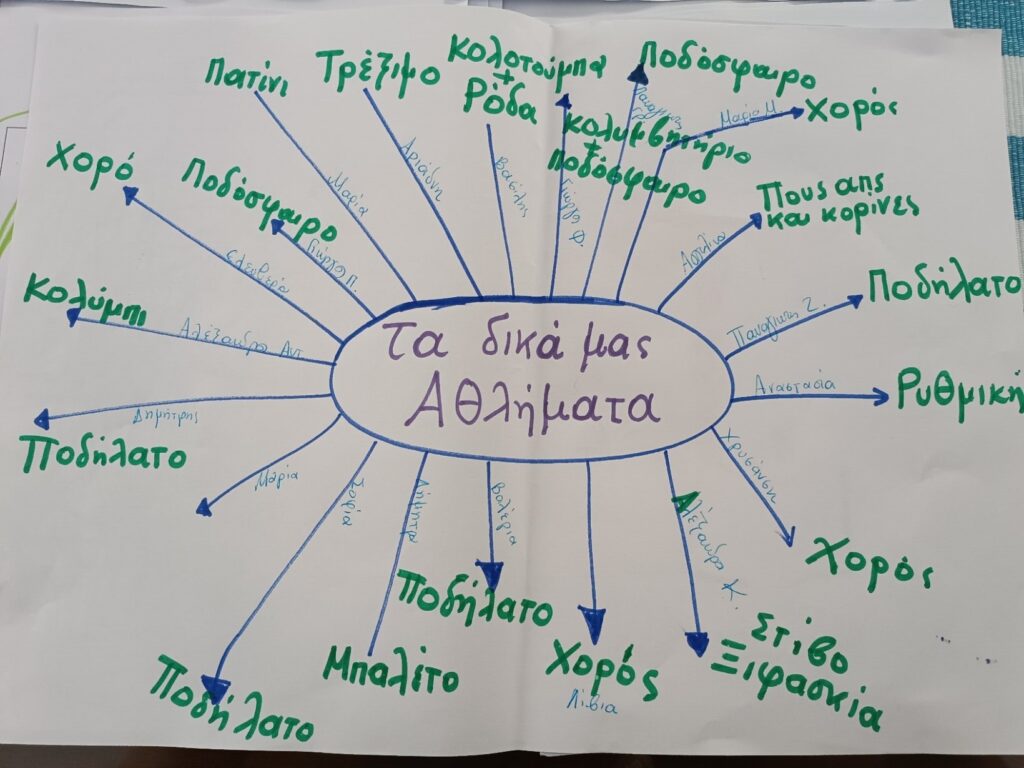 Πατίνι
Μαρία
Τρέξιμο
Αριάδνη
Κολοτούμπα
+
Ρόδα
Βασίλης
Κολυμβητήριο
+
ποδόσφαιρο
Γιώργος Φ.
Ποδόσφαιρο
Χορός
Μαρία Μ.
Πους απς
και κορινες
Ποδήλατο
Παναγιώτης Ζ.
Ρυθμική
Αναστασία
Χορός
Χρυσάνθη
Στίβο
Ξιφασκία
Αλέξανδρο Κ.
Χορός
Λίβια
Ποδήλατο
Βαλέρια
Μπαλέτο
Δήμητρα
Ποδήλατο
Σοφία
Μαρία
Ποδήλατο
Δημήτρης
Κολύμπι
Αλέξανδρο Αντ.
Χορό
Ελευθερία
Ποδόσφαιρο
Γιώργο Π.
Τα δικά μας
Αθλήματα